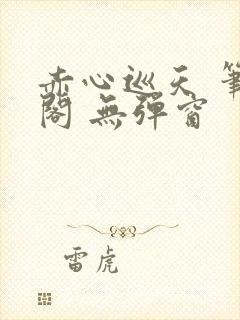 赤心巡天 筆
閣 無彈窗
雷虎